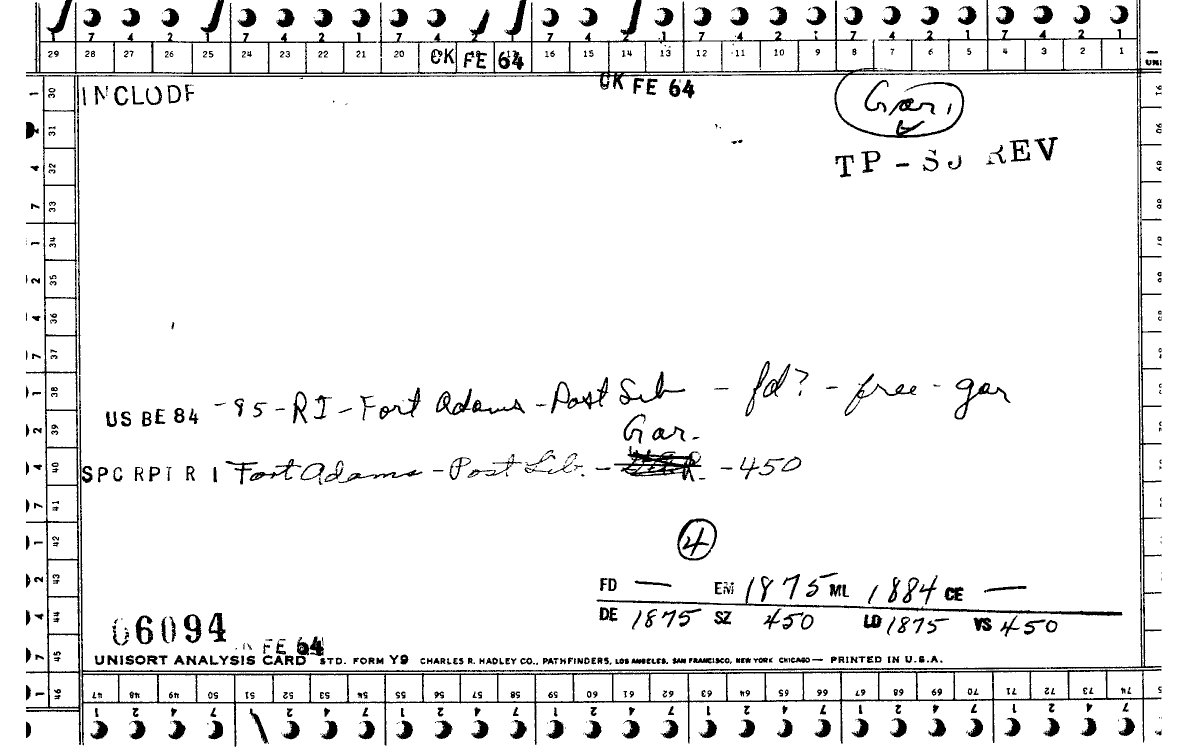 7 4 2 7 4 2 1 7 4 2 7 4 1 7 4 2 1 7 4 2 1 7 4 2 1
29 28 27 26 25 24 23 22 21 20 CK FE 64 16 15 14 13 12 11 10 9 8 7 6 5 4 3 2 1
CK FE 64
INCLUDE
Gar.
TP - SJ REV
US BE 84 - 95 - RI - Fort Adams - Post Lib - fd? - free - gar
Gar.
SPC RPT R I Fort Adams - Post Lib. - - 450
4
FD — EM 1875 ML 1884 CE —
DE 1875 SZ 450 LD 1875 VS 450
06094
FE 64
UNISORT ANALYSIS CARD STD. FORM Y9 CHARLES R. HADLEY CO., PATHFINDERS, LOS ANGELES, SAN FRANCISCO, NEW YORK CHICAGO — PRINTED IN U.S.A.
30
31
32
33
34
35
36
37
38
39
40
41
42
43
44
45
46
47 48 49 50 51 52 53 54 55 56 57 58 59 60 61 62 63 64 65 66 67 68 69 70 71 72 73 74